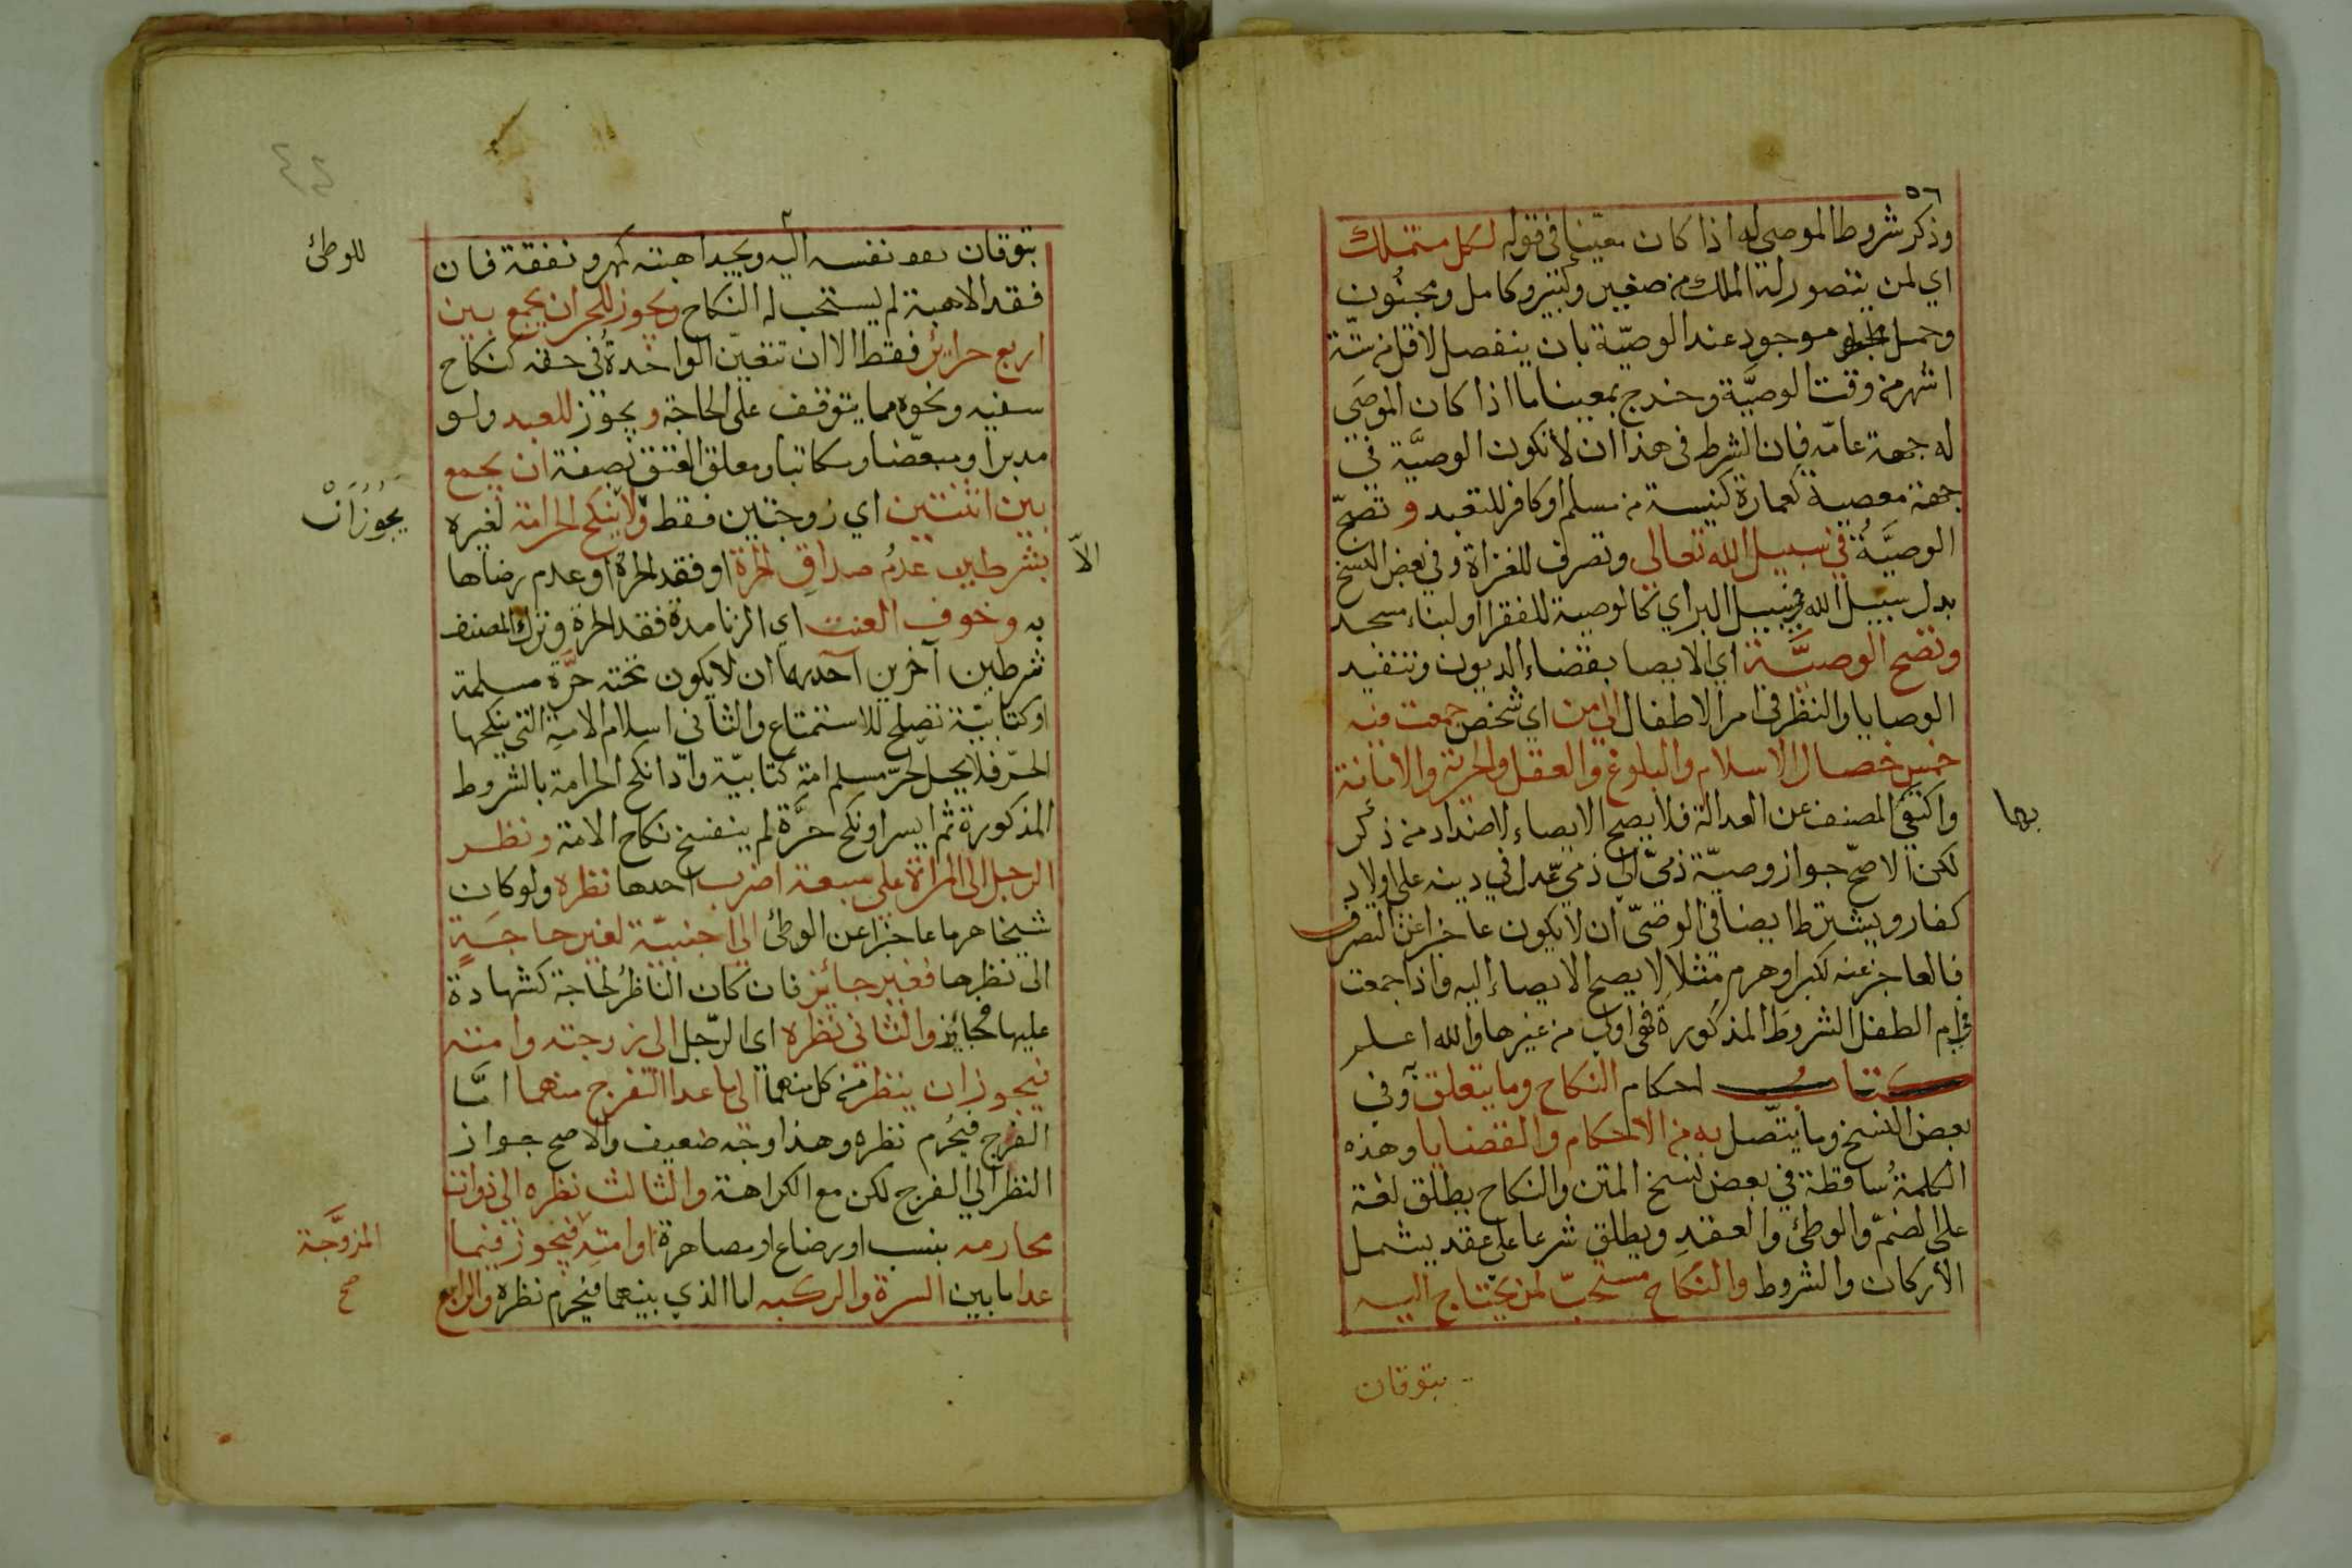 ٥٦
وذكر شروط الموصى له اذا كان معينا في قوله لكل متملك
اي لمن يتصور له الملك من صغير وكبير وكامل ومجنون
وحمل موجود عند الوصيّة بان ينفصل لاقل من ستة
اشهر من وقت الوصيَّة وخرج بمعينا ما اذا كان الموصَى
له جهة عامّه فان الشرط في هذا ان لا تكون الوصيَّة في
جهة معصية كعمارة كنيسة من مسلم او كافر للتعبد وتصحّ
الوصيَّة في سبيل الله تعالى وتصرف للغزاة وفي بعض النسخ
بدل سبيل الله في سبيل البر اي كالوصية للفقرا او لبناء مسجد
وتصح الوصيَّة اي الايصا بقضاء الديون وتنفيد
الوصايا والنظر في امر الاطفال الى من اي شخص جمعت فيه
خمس خصال الاسلام والبلوغ والعقل والحرية والامانة
واكتفى المصنف عن العدالة فلا يصح الايصاء لاضداد من ذكر
بها
لكن الاصحّ جواز وصيّة ذمىّ الى ذمي عدل في دينه على اولاد
كفار ويشترط ايضا في الوصىّ ان لا يكون عاجزا عن التصرف
فالعاجز عنه لكبر او هرم مثلا لا يصح الايصاء اليه واذا جمعت
في ام الطفل الشروط المذكورة فهي اولى من غيرها والله اعلم
كتاب احكام النكاح وما يتعلق وفي
بعض النسخ وما يتّصل به من الاحكام والقضايا وهذه
الكلمة ساقطة في بعض نسخ المتن والنكاح يطلق لغة
على الضمّ والوطئ والعقد ويطلق شرعا على عقد يشمل
الأركان والشروط والنكاح مستحبّ لمن يحتاج اليه
بتوقان
بتوقان نفسه اليه ويجد اهبته كمهر ونفقة فان
للوطئ
فقد الاهبة لم يستحب له النكاح ويجوز للحر ان يجمع بين
اربع حرائر فقط الا ان تتعيّن الواحدة في حقه كنكاح
سفيه ونحوه مما يتوقف على الحاجة ويجوز للعبد ولو
مدبرا او مبعّضا او مكاتبا او معلق العتق بصفة ان يجمع
بين اثنتين اي زوجتين فقط ولا ينكح الحر امة لغيره
يجوزان
الاّ
بشرطين عدم صداق الحرة او فقد الحرة او عدم رضاها
به وخوف العنت اي الزنا مدة فقد الحرة وترك المصنف
شرطين آخرين احدهما ان لا يكون تحته حرَّة مسلمة
او كتابيّة تصلح للاستمتاع والثاني اسلام الامة التي ينكحها
الحرّ فلا يحل لحرّ مسلم امة كتابيّة واذا نكح الحر امة بالشروط
المذكورة ثم ايسر او نكح حرَّة لم ينفسخ نكاح الامة ونظر
الرجل الى المراة على سبعة اضرب احدها نظره ولو كان
شيخا هرما عاجزا عن الوطئ الى اجنبيّة لغير حاجة
الى نظرها فغير جائز فان كان الناظر لحاجة كشهادة
عليها فجائز والثاني نظره اى الرّجل الى زوجته وامته
فيجوز ان ينظر من كل منهما الى ما عدا الفرج منهما امّا
الفرج فيحرم نظره وهذا وجه ضعيف والاصح جواز
النظر الى الفرج لكن مع الكراهة والثالث نظره الى ذوات
محارمه بنسب او رضاع او مصاهرة او امته فيجوز فيما
المزوَّجة
صح
عدا ما بين السرة والركبه اما الذي بينهما فيحرم نظره والرابع